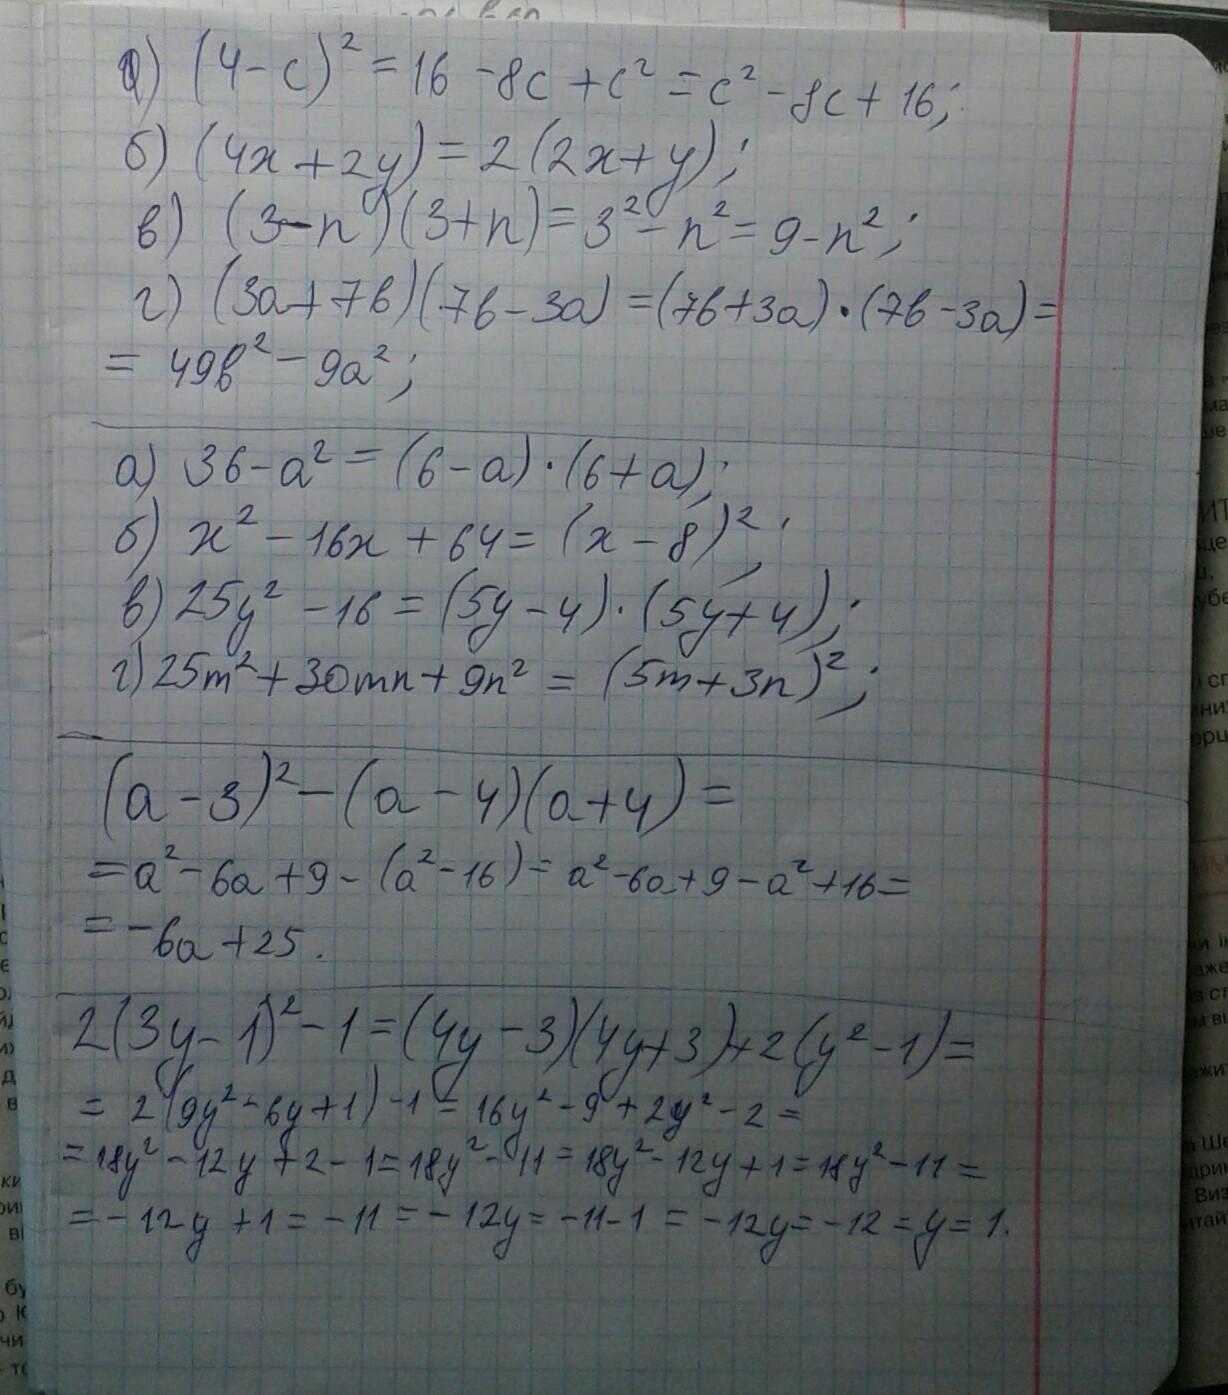 а) (4-c)² = 16 - 8c + c² = c² - 8c + 16;
б) (4x + 2y) = 2(2x+y);
в) (3-n)(3+n) = 3² - n² = 9 - n²;
г) (3a+7b)(7b-3a) = (7b+3a)·(7b-3a) =
= 49b² - 9a²;
а) 36 - a² = (6-a)·(6+a);
б) x² - 16x + 64 = (x-8)²;
в) 25y² - 16 = (5y-4)·(5y+4);
г) 25m² + 30mn + 9n² = (5m+3n)²;
(a-3)² - (a-4)(a+4) =
= a² - 6a + 9 - (a² - 16) = a² - 6a + 9 - a² + 16 =
= -6a + 25.
2(3y-1)² - 1 = (4y-3)(4y+3) + 2(y²-1) =
= 2(9y² - 6y + 1) - 1 = 16y² - 9 + 2y² - 2 =
= 18y² - 12y + 2 - 1 = 18y² - 11 = 18y² - 12y + 1 = 18y² - 11 =
= -12y + 1 = -11 = -12y = -11 - 1 = -12y = -12 = y = 1.